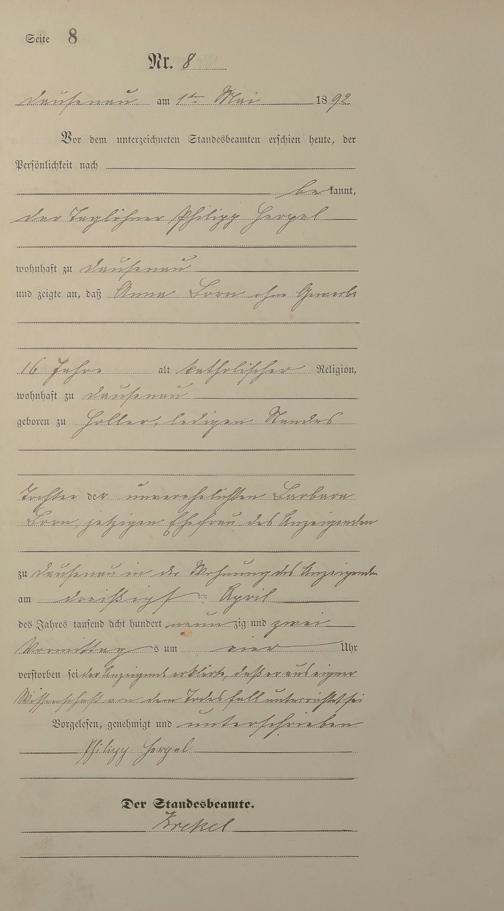 Seite 8
Nr. 8
Dausenau am 1ten Mai 1892
Vor dem unterzeichneten Standesbeamten erschien heute, der
Persönlichkeit nach
bekannt,
der Taglöhner Philipp Hergel
wohnhaft zu Dausenau
und zeigte an, daß Anna Born ohne Gewerbe
16 Jahre alt katholischer Religion,
wohnhaft zu Dausenau
geboren zu Holler, ledigen Standes
Tochter der unverehelichten Barbara
Born jetzigen Ehefrau des Anzeigenden
zu Dausenau in der Wohnung des Anzeigenden
am dreißigst ten April
des Jahres tausend acht hundert neunzig und zwei
Vormittags um vier Uhr
verstorben sei der Anzeigende erklärte, daß er aus eigner
Wissenschaft von dem Todesfall unterrichtet sei
Vorgelesen, genehmigt und unterschrieben
Philipp Hergel
Der Standesbeamte.